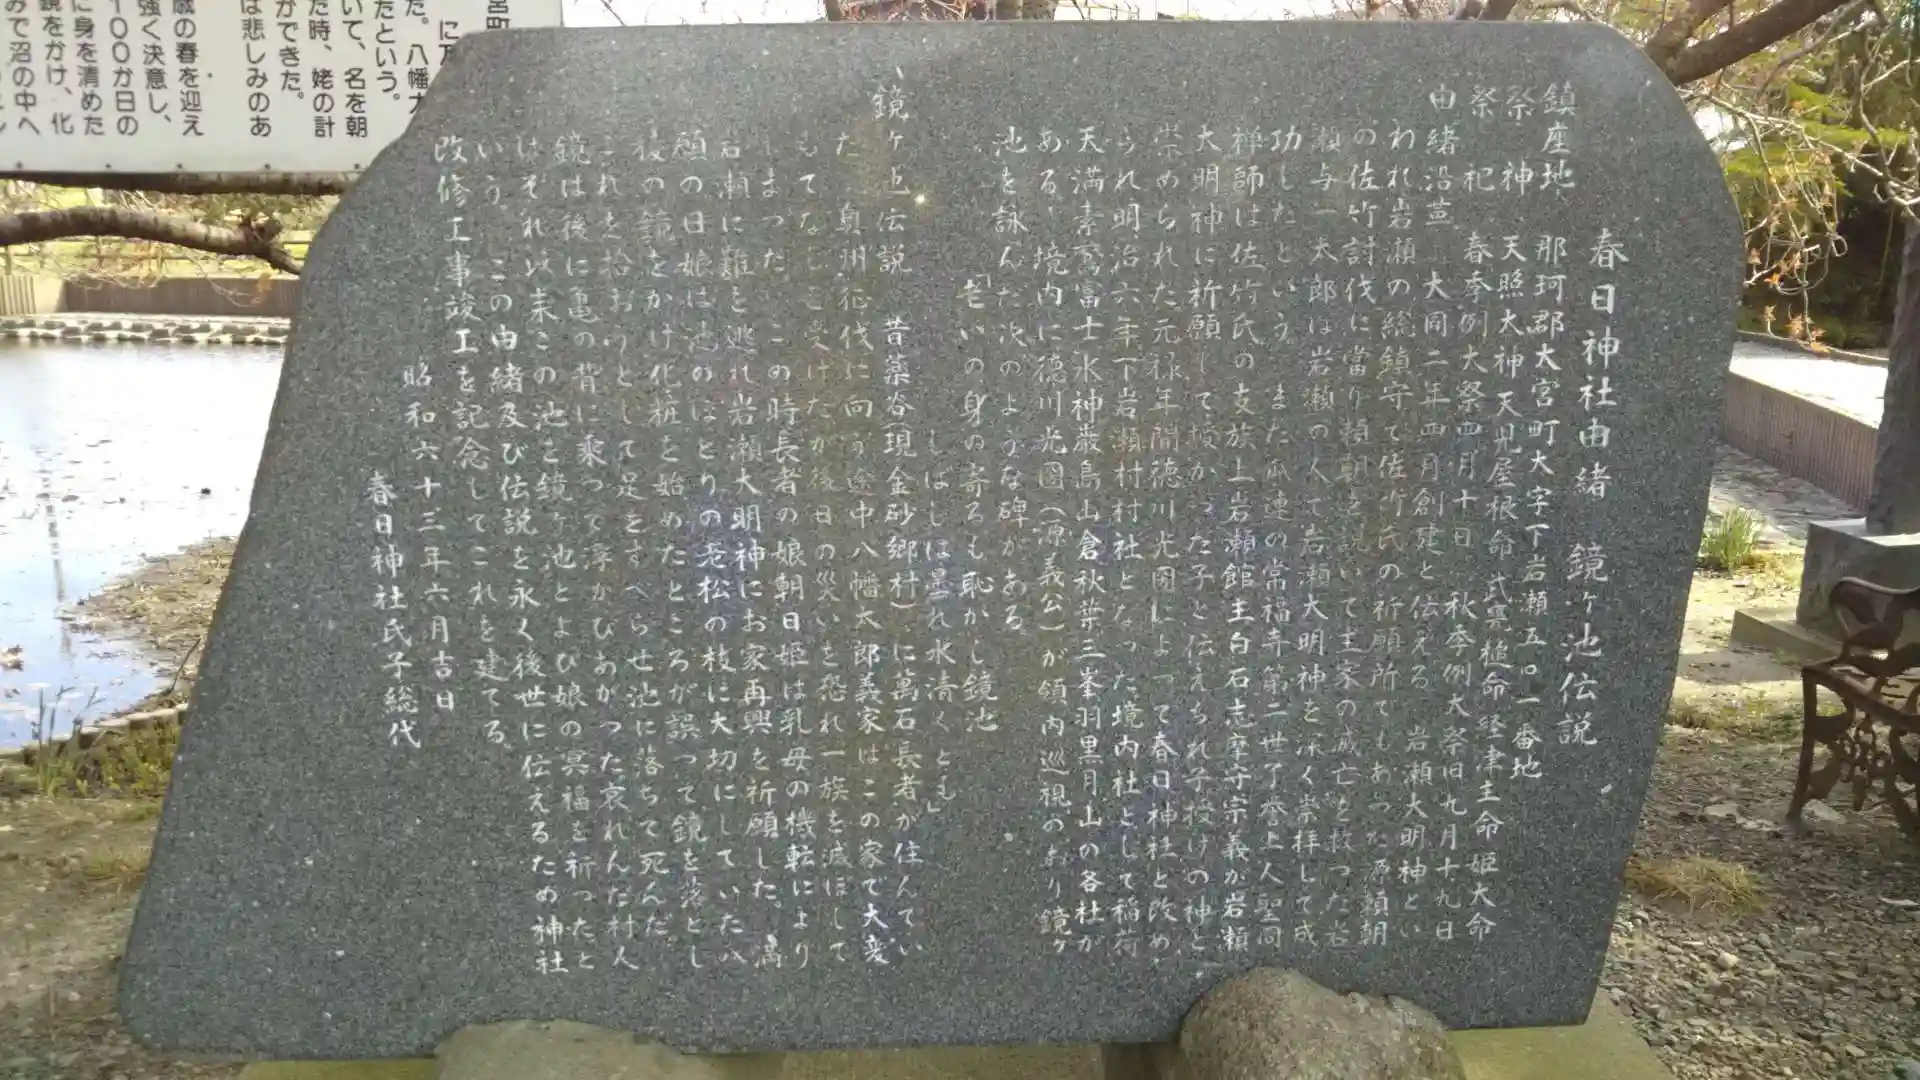 春日神社由緒　鏡ヶ池伝説
鎮座地　那珂郡大宮町大字下岩瀬五〇一番地
祭神　天照大神 天児屋根命 武甕槌命 経津主命 姫大命
祭祀　春季例大祭四月十日　秋季例大祭旧九月十九日
由緒沿革　大同二年四月創建と伝える 岩瀬大明神とい
われ岩瀬の総鎮守で佐竹氏の祈願所でもあった 源頼朝
の佐竹討伐に當り頼朝を説いて主家の滅亡を救った岩
瀬与一太郎は岩瀬の人で岩瀬大明神を深く崇拝して成
功したという。また瓜連の常福寺第二世了誉上人聖冏
禅師は佐竹氏の支族上岩瀬館主白石志摩守宗義が岩瀬
大明神に祈願して授かった子と伝えられ子授けの神と
崇められた 元禄年間徳川光圀によって春日神社と改め
られ明治六年下岩瀬村村社となった 境内社として稲荷
天満素鵞富士水神厳島山倉秋葉三峯羽黒月山の各社が
ある、境内に徳川光圀(源義公)が領内巡視のおり鏡ヶ
池を詠んだ次のような碑がある
「老いの身の寄るも恥かし鏡池
しばしは曇れ水清くとも」
鏡ヶ池伝説　昔薬谷(現金砂郷村)に萬石長者が住んでい
た、奥州征伐に向う途中八幡太郎義家はこの家で大変
もてなしを受けたが後日の災いを恐れ一族を滅ぼして
しまった。この時長者の娘朝日姫は乳母の機転により
岩瀬に難を逃れ岩瀬大明神にお家再興を祈願した。満
願の日娘は池のほとりの老松の枝に大切にしていた八
稜の鏡をかけ化粧を始めたところが誤って鏡を落とし
これを拾おうとして足をすべらせ池に落ちて死んだ
鏡は後に亀の背に乗って浮かびあがった 哀れんだ村人
はそれ以来この池を鏡ヶ池とよび娘の冥福を祈ったと
いう。この由緒及び伝説を永く後世に伝えるため神社
改修工事竣工を記念してこれを建てる
昭和六十三年六月吉日
春日神社氏子総代
宮町
に万
た。八幡太
たという。
いて、名を朝
た時、姥の計
ができた。
は悲しみのあ
歳の春を迎え
強く決意し、
100か日の
に身を清めた
鏡をかけ、化
みで沼の中へ